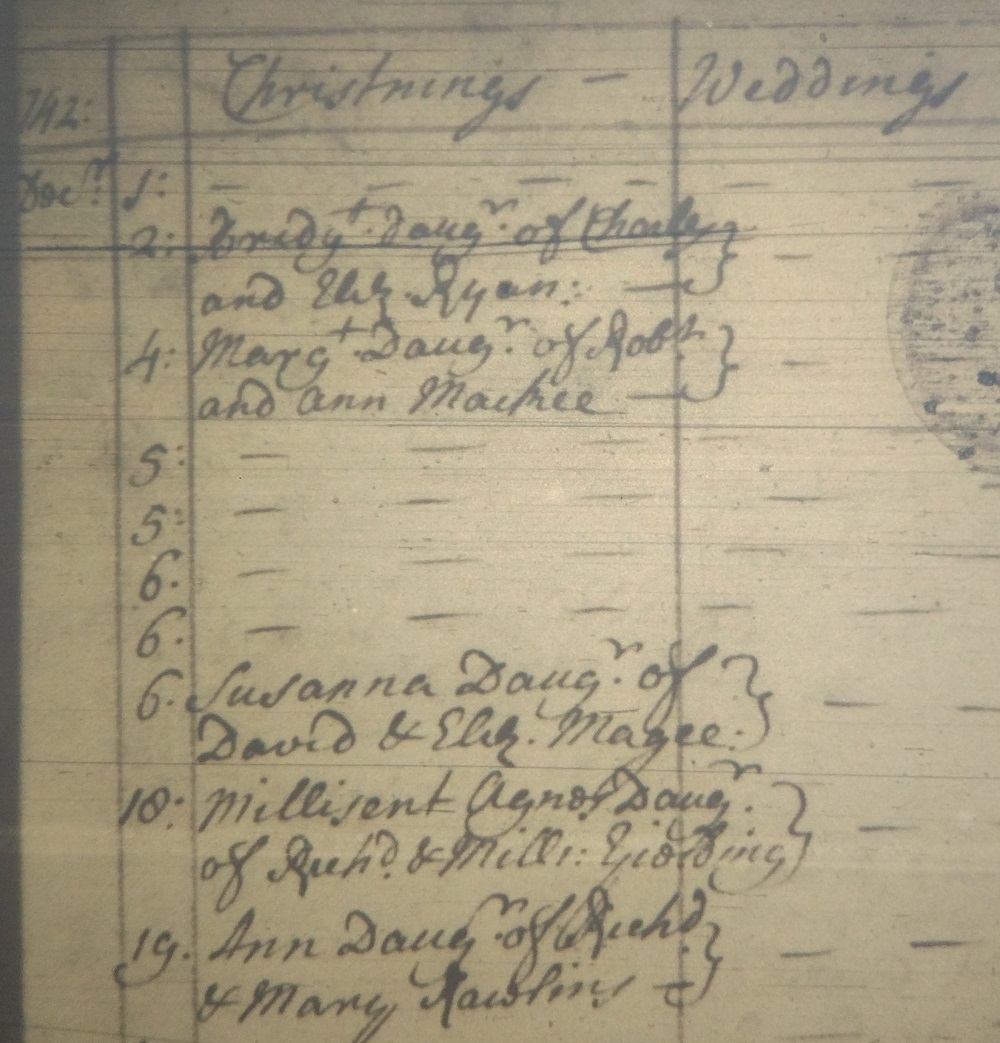 Christnings — Weddings
742:
Decr. 1: — — — — — —
2: Bridgt. Daugr. of Charles
and Eliz Ryan: — —
4: Margt. Daugr. of Robt
and Ann Mackee — —
5: — — — —
5: — — — —
6. — — — — —
6: — — — — —
6. Susanna Daugr. of
David & Eliz. Magee: — —
18: Millisent Agnes Daugr.
of Richd. & Mill: —
19. Ann Daugr. of Richd
& Mary Rawlins — — —